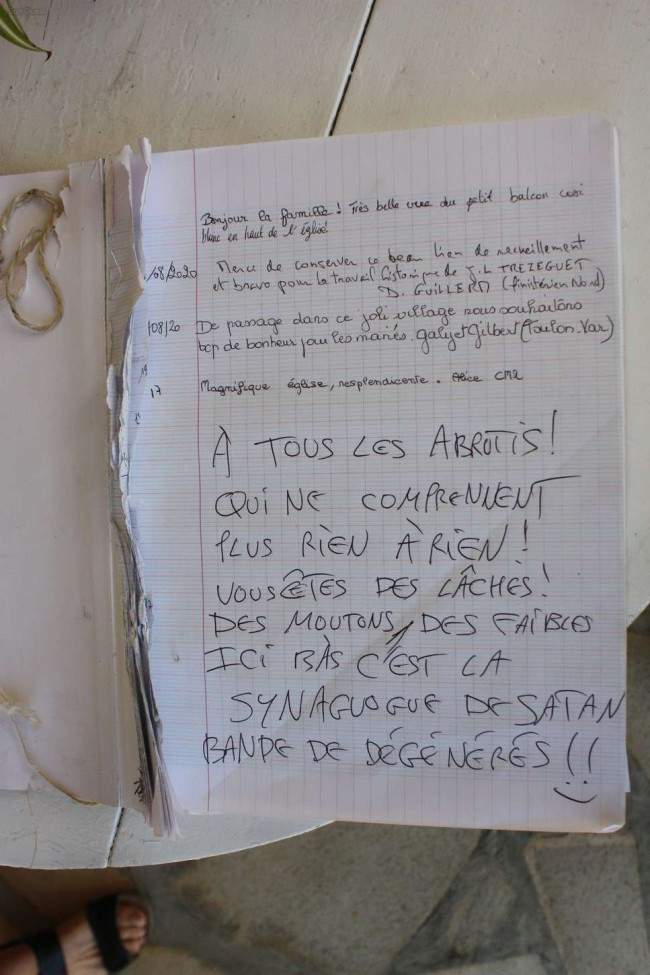 Bonjour la famille ! Très belle vue du petit balcon
blanc en haut de l'église
/08/2020 Merci de conserver ce beau lieu de recueillement
et bravo pour le travail historique de J.L TREZEGUET
D. GUILLERD (finistérien Nord)
/08/20 De passage dans ce joli village nous souhaitons
bcp de bonheur pour les mariés. Gilbert (Toulon. Var)
17 Magnifique église, resplendicente. Alice CM2
À TOUS LES ABROTIS !
QUI NE COMPRENNENT
PLUS RIEN À RIEN !
VOUS ÊTES DES LÂCHES !
DES MOUTONS, DES FAIBLES
ICI BÀS C'EST LA
SYNAGUOGUE DE SATAN
BANDE DE DÉGÉNÉRÉS !!